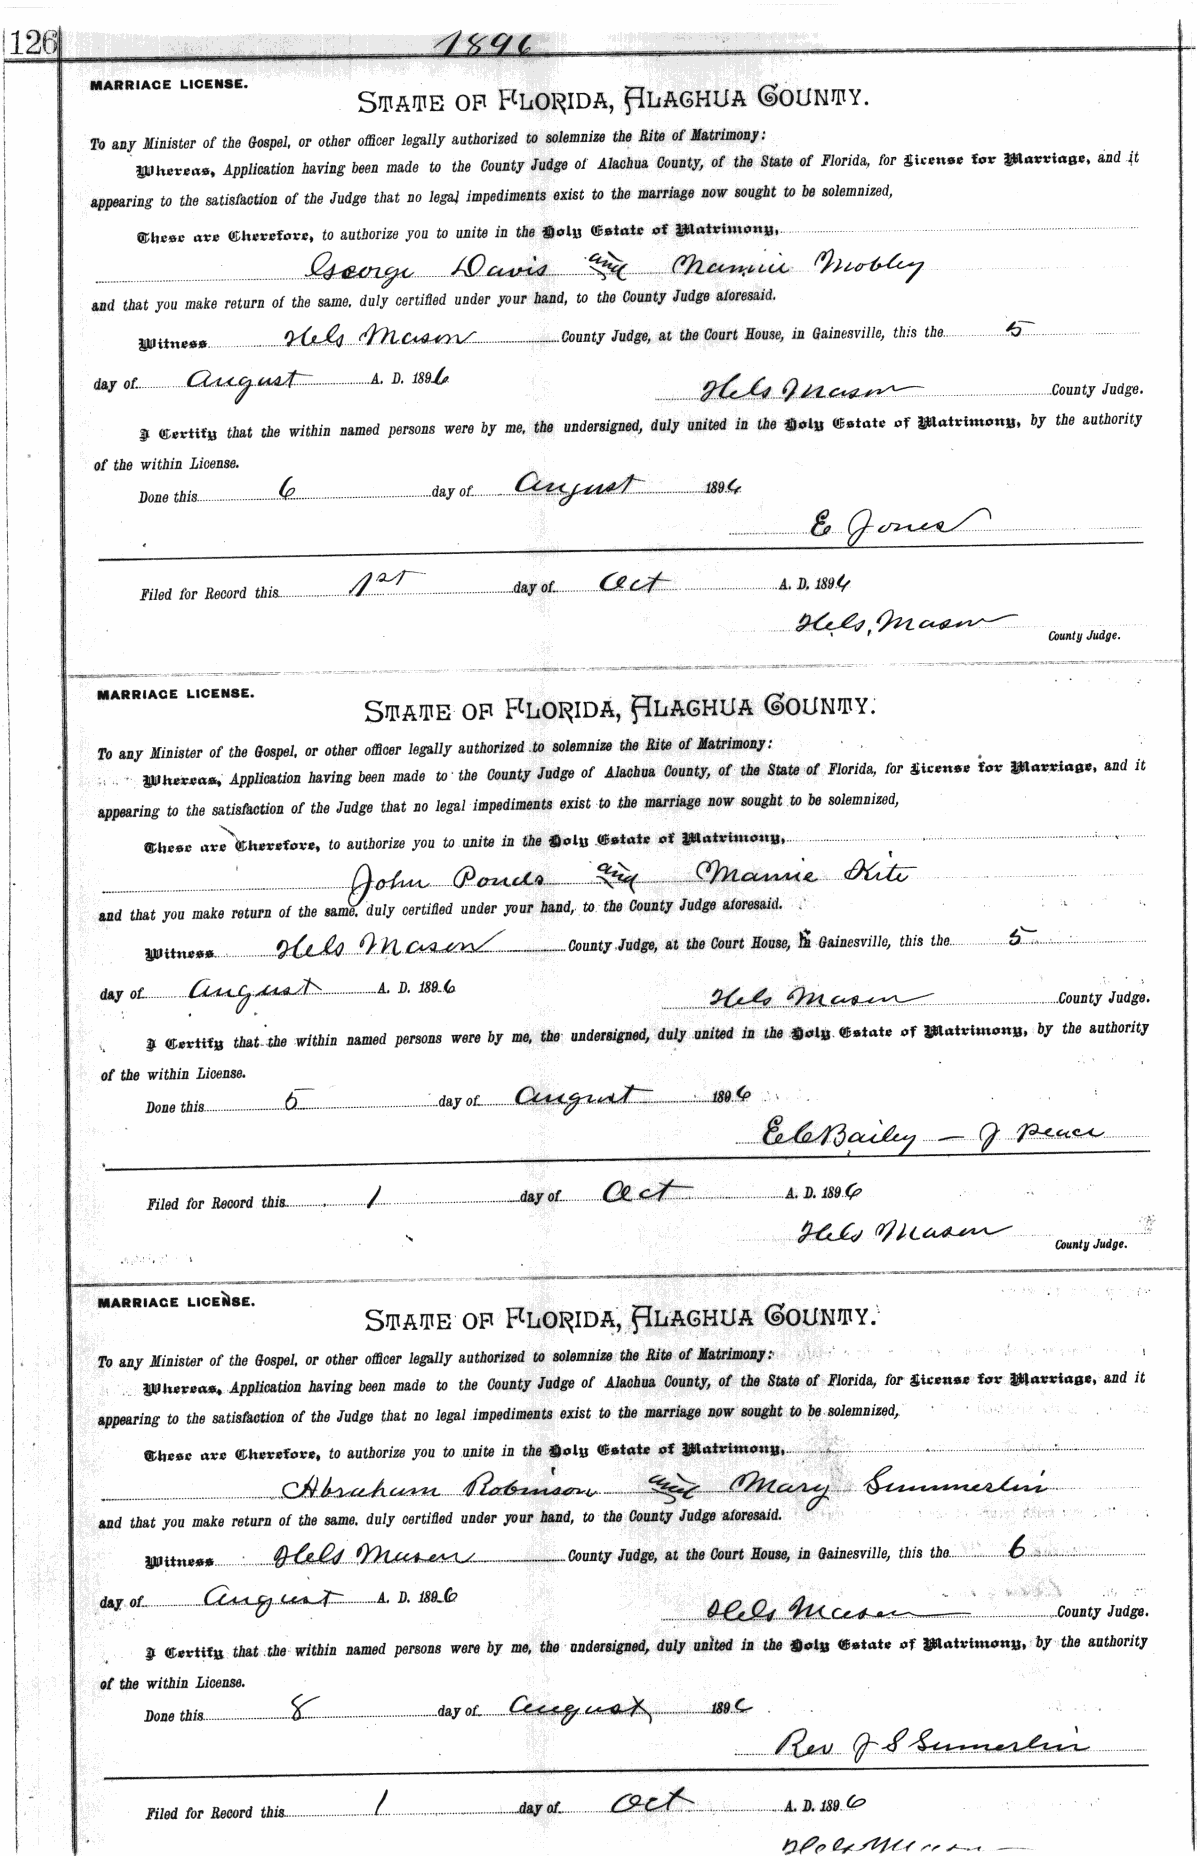 126
1896
MARRIAGE LICENSE.
STATE OF FLORIDA, ALACHUA COUNTY.
To any Minister of the Gospel, or other officer legally authorized to solemnize the Rite of Matrimony:
Whereas, Application having been made to the County Judge of Alachua County, of the State of Florida, for License for Marriage, and it
appearing to the satisfaction of the Judge that no legal impediments exist to the marriage now sought to be solemnized,
These are Therefore, to authorize you to unite in the Holy Estate of Matrimony,
George Davis and Mamie Mobley
and that you make return of the same, duly certified under your hand, to the County Judge aforesaid.
Witness Hels Mason County Judge, at the Court House, in Gainesville, this the 5
day of August A. D. 1896
Hels Mason County Judge.
I Certify that the within named persons were by me, the undersigned, duly united in the Holy Estate of Matrimony, by the authority
of the within License.
Done this 6 day of August 1896
E Jones
Filed for Record this 1st day of Oct A. D. 1896
Hels, Mason
County Judge.
MARRIAGE LICENSE.
STATE OF FLORIDA, ALACHUA COUNTY.
To any Minister of the Gospel, or other officer legally authorized to solemnize the Rite of Matrimony:
Whereas, Application having been made to the County Judge of Alachua County, of the State of Florida, for License for Marriage, and it
appearing to the satisfaction of the Judge that no legal impediments exist to the marriage now sought to be solemnized,
These are Therefore, to authorize you to unite in the Holy Estate of Matrimony,
John Ponds and Mamie Kite
and that you make return of the same, duly certified under your hand, to the County Judge aforesaid.
Witness Hels Mason County Judge, at the Court House, in Gainesville, this the 5
day of August A. D. 1896
Hels Mason County Judge.
I Certify that the within named persons were by me, the undersigned, duly united in the Holy Estate of Matrimony, by the authority
of the within License.
Done this 5 day of August 1896
E C Bailey — J Peace
Filed for Record this 1 day of Oct A. D. 1896
Hels Mason
County Judge.
MARRIAGE LICENSE.
STATE OF FLORIDA, ALACHUA COUNTY.
To any Minister of the Gospel, or other officer legally authorized to solemnize the Rite of Matrimony:
Whereas, Application having been made to the County Judge of Alachua County, of the State of Florida, for License for Marriage, and it
appearing to the satisfaction of the Judge that no legal impediments exist to the marriage now sought to be solemnized,
These are Therefore, to authorize you to unite in the Holy Estate of Matrimony,
Abraham Robinson and Mary Summerlin
and that you make return of the same, duly certified under your hand, to the County Judge aforesaid.
Witness Hels Mason County Judge, at the Court House, in Gainesville, this the 6
day of August A. D. 1896
Hels Mason County Judge.
I Certify that the within named persons were by me, the undersigned, duly united in the Holy Estate of Matrimony, by the authority
of the within License.
Done this 8 day of August 1896
Rev J S Sumerlin
Filed for Record this 1 day of Oct A. D. 1896
Hels Mason